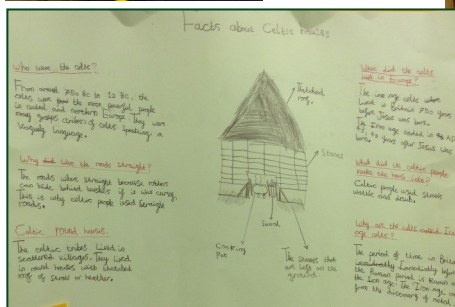 Facts about Celtic houses
Who were the celts?
From around 750 BC to 12 BC, the
celts were the most powerful people
in central and northern Europe. They were
many groups (tribes) of celts speaking a
language.
Why did were the roads straight?
The roads where straight because robbers
can hide behind bushes if it was curvey.
This is why celtic people used straight
roads.
Celtic round houses.
The celtic tribes lived in
scattered villages. They lived
in round houses with thatched
roof of straw or heather.
Thatched
roof.
Stones
Cooking
Pot
Sword
The stones that
are left on the
ground.
When did the celts
lived in Europe?
The iron age celts
lived in Britain 750 years
before Jesus was born.
The Iron age ended in AD
43 years after Jesus was
born.
What did the celtic people
make the house
Celtic people used straw
wattle and daub.
Why are the celts called Iron
age celts?
The period of time in Britain
before
the Roman period is known as
the Iron age. The Iron age
from the discovery of